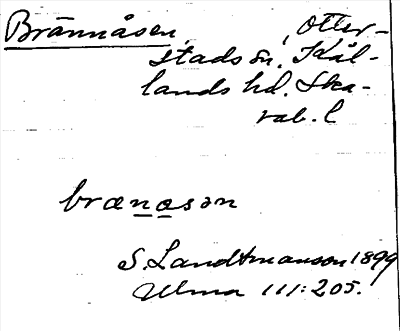 Brännåsen, Otter-
stads sn. Kål-
lands hd. Ska-
rab. l
brænåsən
S. Landtmanson 1899
Ulma 111:205.